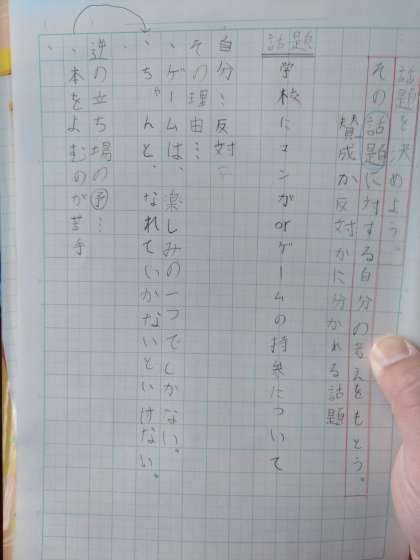 話題を決めよう。
その話題に対する自分の考えをもとう。
賛成か反対かに分かれる話題
話題
学校にマンガorゲームの持参について
自分…反対
その理由…
・ゲームは、楽しみの一つでしかない。
・ちゃんと、なれていかないといけない。
逆の立ち場の予…
・本をよむのが苦手